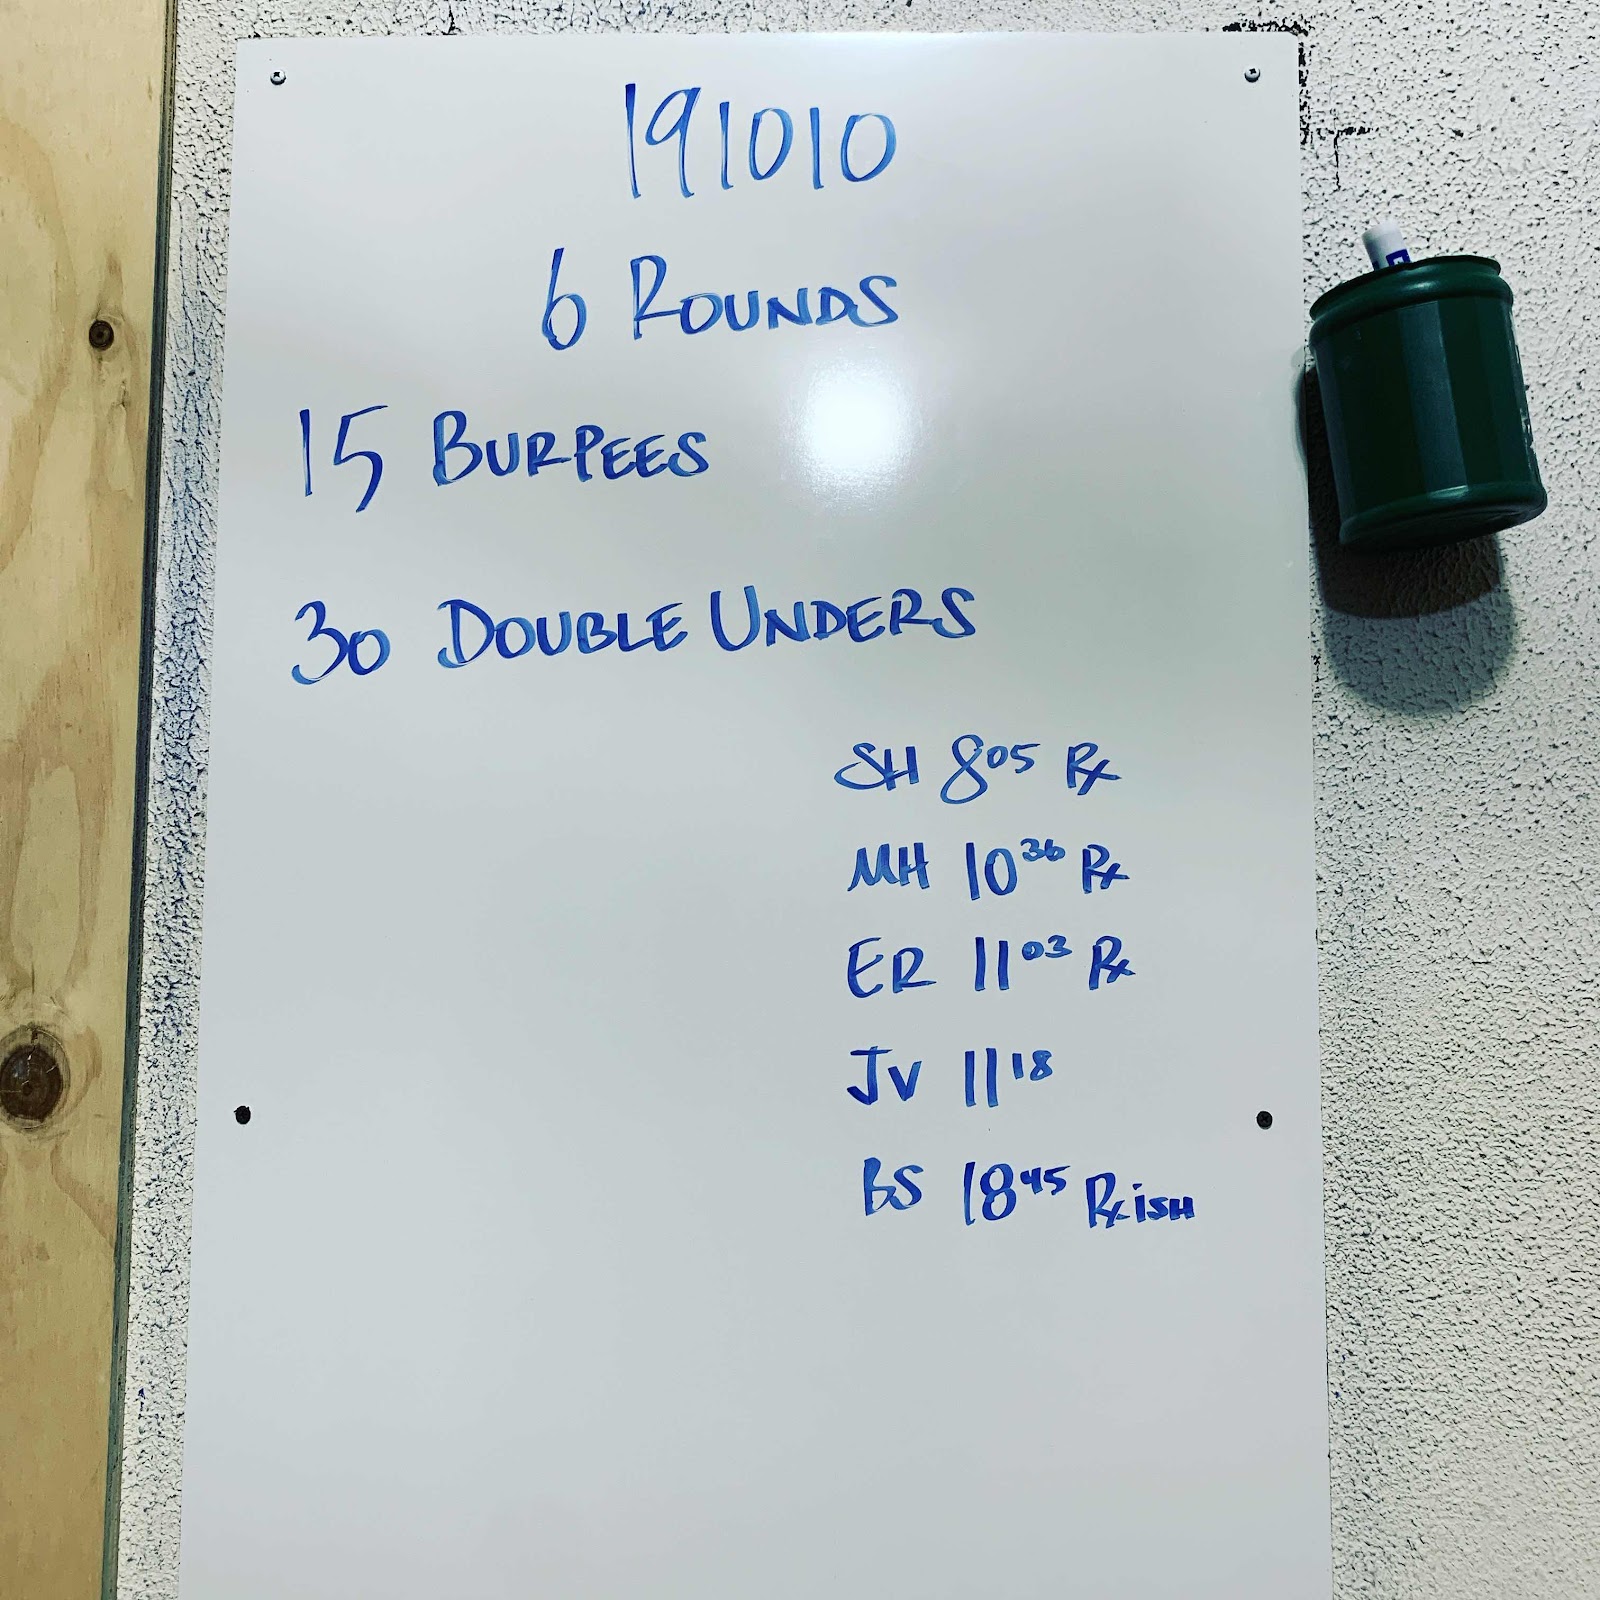 191010
6 ROUNDS
15 BURPEES
30 DOUBLE UNDERS
SH 8 05 Rx
MH 10 36 Rx
ER 11 03 Rx
JV 11 18
BS 18 45 Rxish